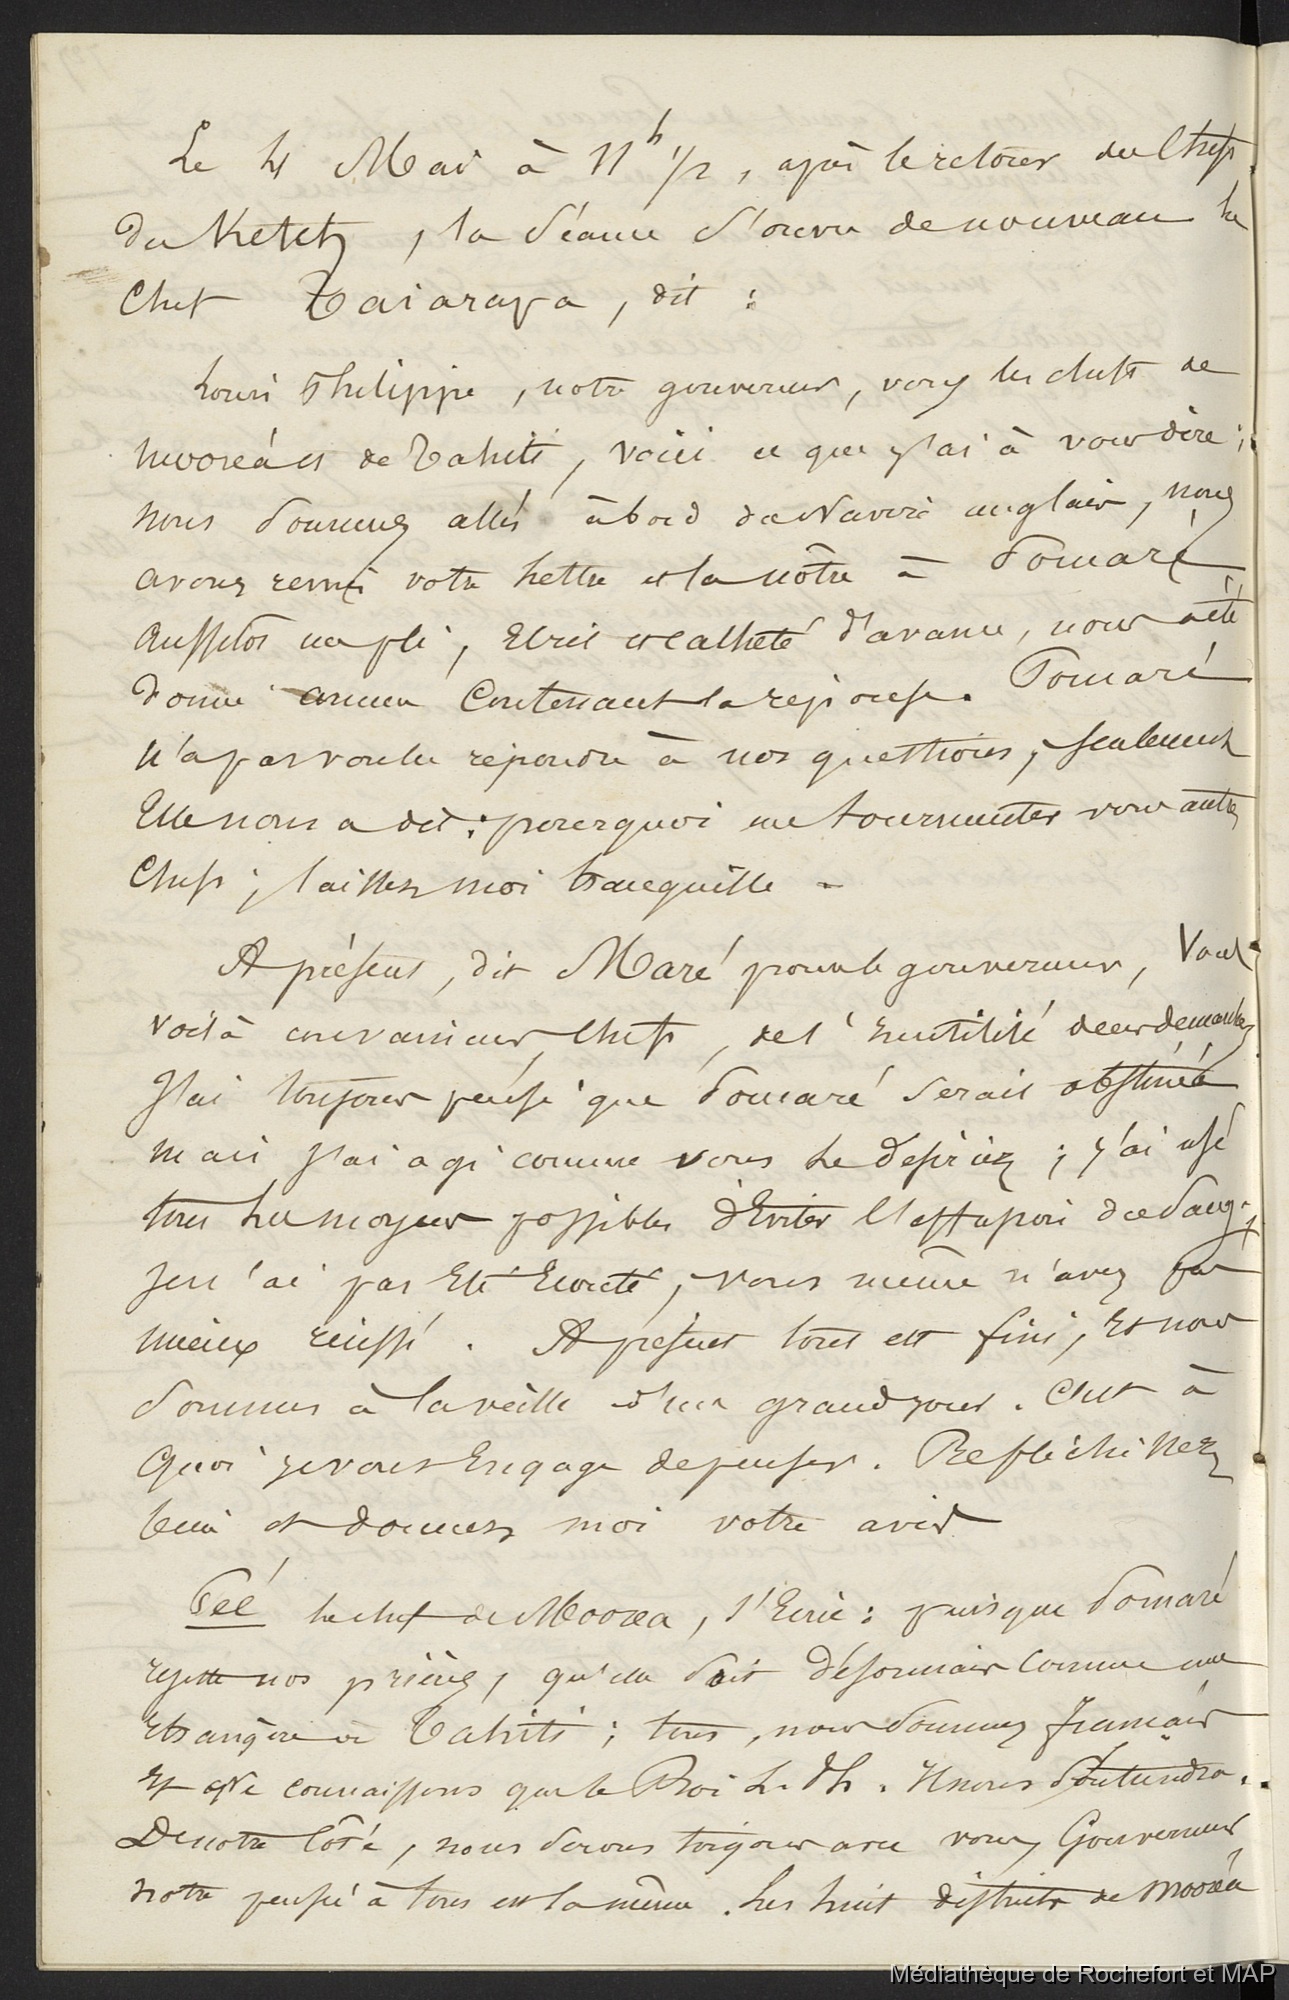 Le 4 Mai à 11h 1/2, après le retour du Chef
du Ketch, la séance s'ouvre de nouveau le
Chef Taiarapa, dit :
Louis Philippe, notre gouverneur, vous les chefs de
Mooréa et de Tahiti, voici ce que j'ai à vous dire ;
nous sommes allés à bord du Navire anglais, nous
avons remis votre lettre et la nôtre à Pomaré
Aussitôt un pli, Ecrit et cacheté d'avance, nous a été
donné comme Contenant la reponse. Pomaré
n'a pas voulu répondre à nos questions ; seulement
Elle nous a dit : pourquoi me tourmenter vous autres
Chefs ; laissez moi tranquille -
A présent, dit Maré pour le gouverneur, Vous
voilà convaincus, Chefs, de l'Inutilité de ces demandes
J'ai toujours pensé que Pomaré serait obstinée
mais j'ai agi comme vous le desiriez ; j'ai usé
tous les moyens possibles d'Eviter l'effusion de sang ;
je n'ai pas Eté Ecouté, vous même n'avez pas
mieux réussi. A présent tout est fini, Et nous
sommes à la veille d'un grand jour. C'est à
Quoi je vous Engage de penser. Reflechissez
bien et donnez moi votre avis
Peé le chef de Moorea, s'Ecrie : puisque Pomaré
rejette nos prières, qu'elle soit désormais comme une
Etrangère à Tahiti ; tous, nous sommes français
Et Ne connaissons que le Roi L. Ph. Il nous soutiendra.
De notre côté, nous serons toujours avec vous, Gouverneur
Notre pensée à tous est la même. Les huit districts de Mooréa
Médiathèque de Rochefort et MAP